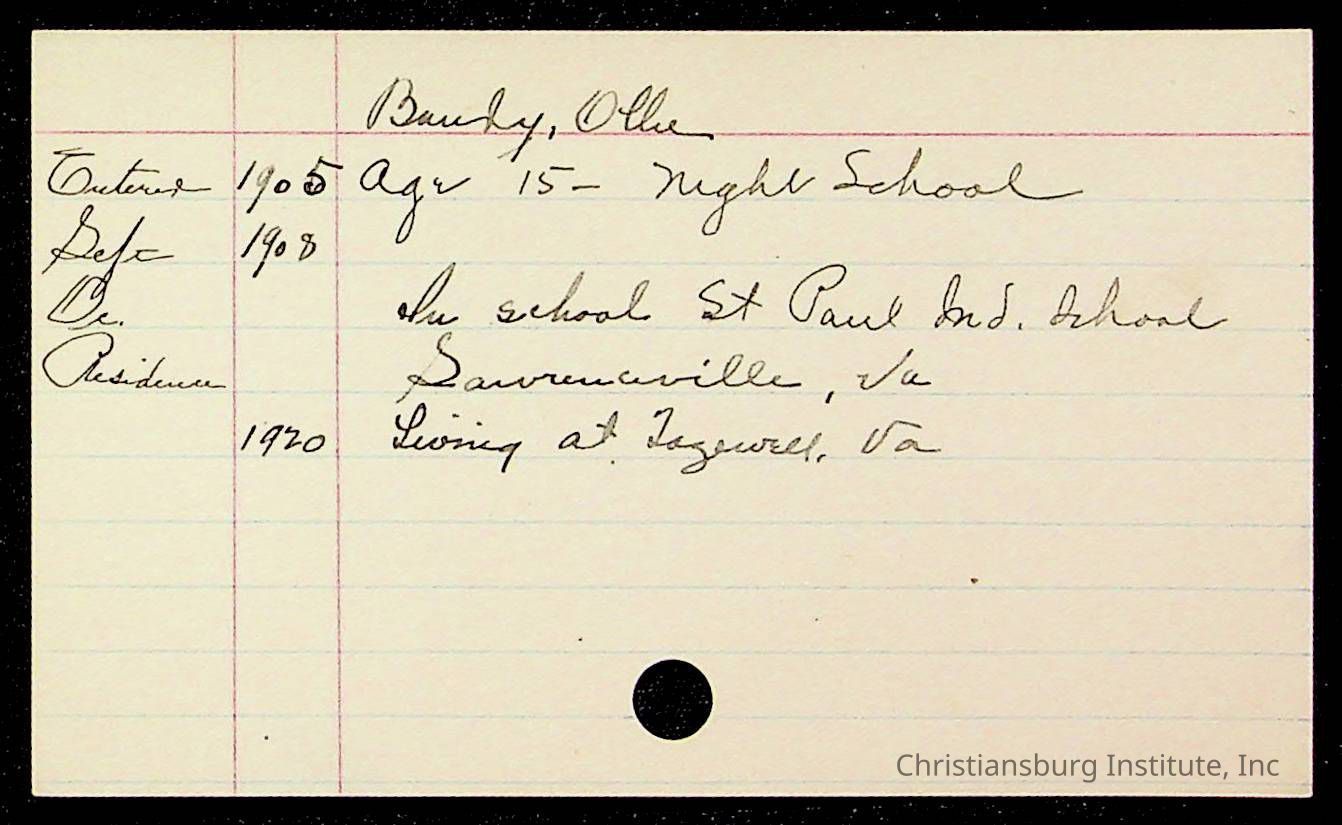 Bandy, Ollie
Entered 1905 Age 15 - Night School
Left 1908
Oc. In school St Paul Ind. School
Residence Lawrenceville, Va
1920 Living at Tazewell, Va
Christiansburg Institute, Inc